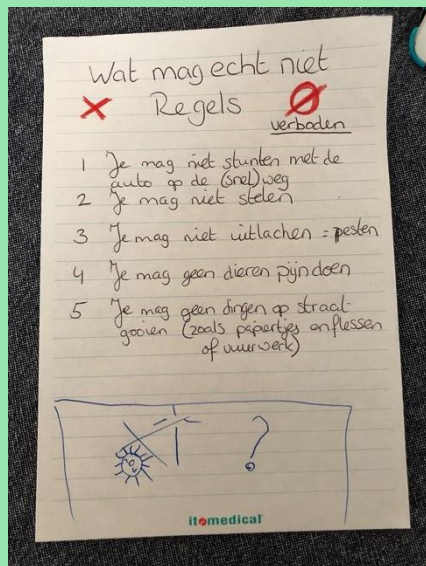 Wat mag echt niet
Regels
verboden
1 Je mag niet stunten met de
auto op de (snel)weg
2 Je mag niet stelen
3 Je mag niet uitlachen = pesten
4 Je mag geen dieren pijn doen
5 Je mag geen dingen op straat-
gooien (zoals papiertjes en flessen
of vuurwerk)
?
itomedical